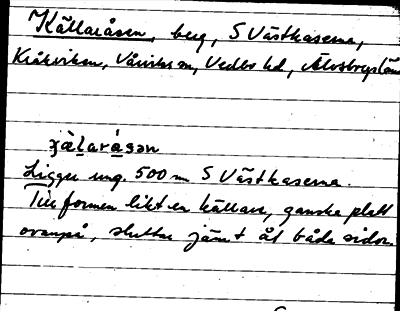 Källaråsen, berg, S Västkaserna,
Kråkviken, Vårviks sn, Vedbo hd, Älvsborgs län
χàlaråsən
Ligger ung. 500 m S Västkaserna.
Till formen likt en källare, ganska platt
ovanpå, sluttar jämt åt båda sidor.